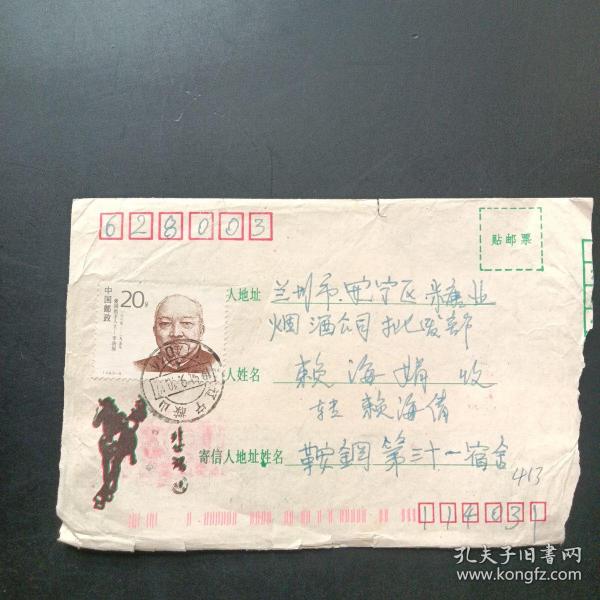 628003
贴邮票
20分
中国邮政
人地址 兰州市.安宁区糖业
烟酒公司批发部
人姓名 赖海娟 收
转 赖海倩
寄信人地址姓名 鞍钢第三十一宿舍
413
114031
辽宁鞍山
孔夫子旧书网
www.kongfz.com